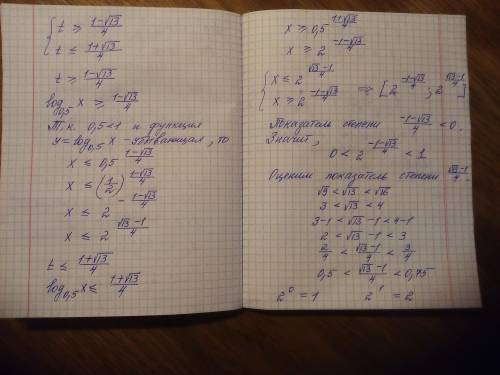 { t ≥ (1-√13)/4
t ≤ (1+√13)/4
t ≥ (1-√13)/4
log₀,₅ x ≥ (1-√13)/4
Т.к. 0,5<1 и функция
y = log₀,₅ x - убывающая, то
x ≤ 0,5^((1-√13)/4)
x ≤ (1/2)^((1-√13)/4)
x ≤ 2^(-(1-√13)/4)
x ≤ 2^((√13-1)/4)
t ≤ (1+√13)/4
log₀,₅ x ≤ (1+√13)/4
x ≥ 0,5^((1+√13)/4)
x ≥ 2^((-1-√13)/4)
{ x ≤ 2^((√13-1)/4)
x ≥ 2^((-1-√13)/4) ⇒ [2^((-1-√13)/4) ; 2^((√13-1)/4)]
Показатель степени (-1-√13)/4 < 0.
Значит,
0 < 2^((-1-√13)/4) < 1
Оценим показатель степени (√13-1)/4.
√9 < √13 < √16
3 < √13 < 4
3-1 < √13-1 < 4-1
2 < √13-1 < 3
2/4 < (√13-1)/4 < 3/4
0,5 < (√13-1)/4 < 0,75
2⁰ = 1 2¹ = 2